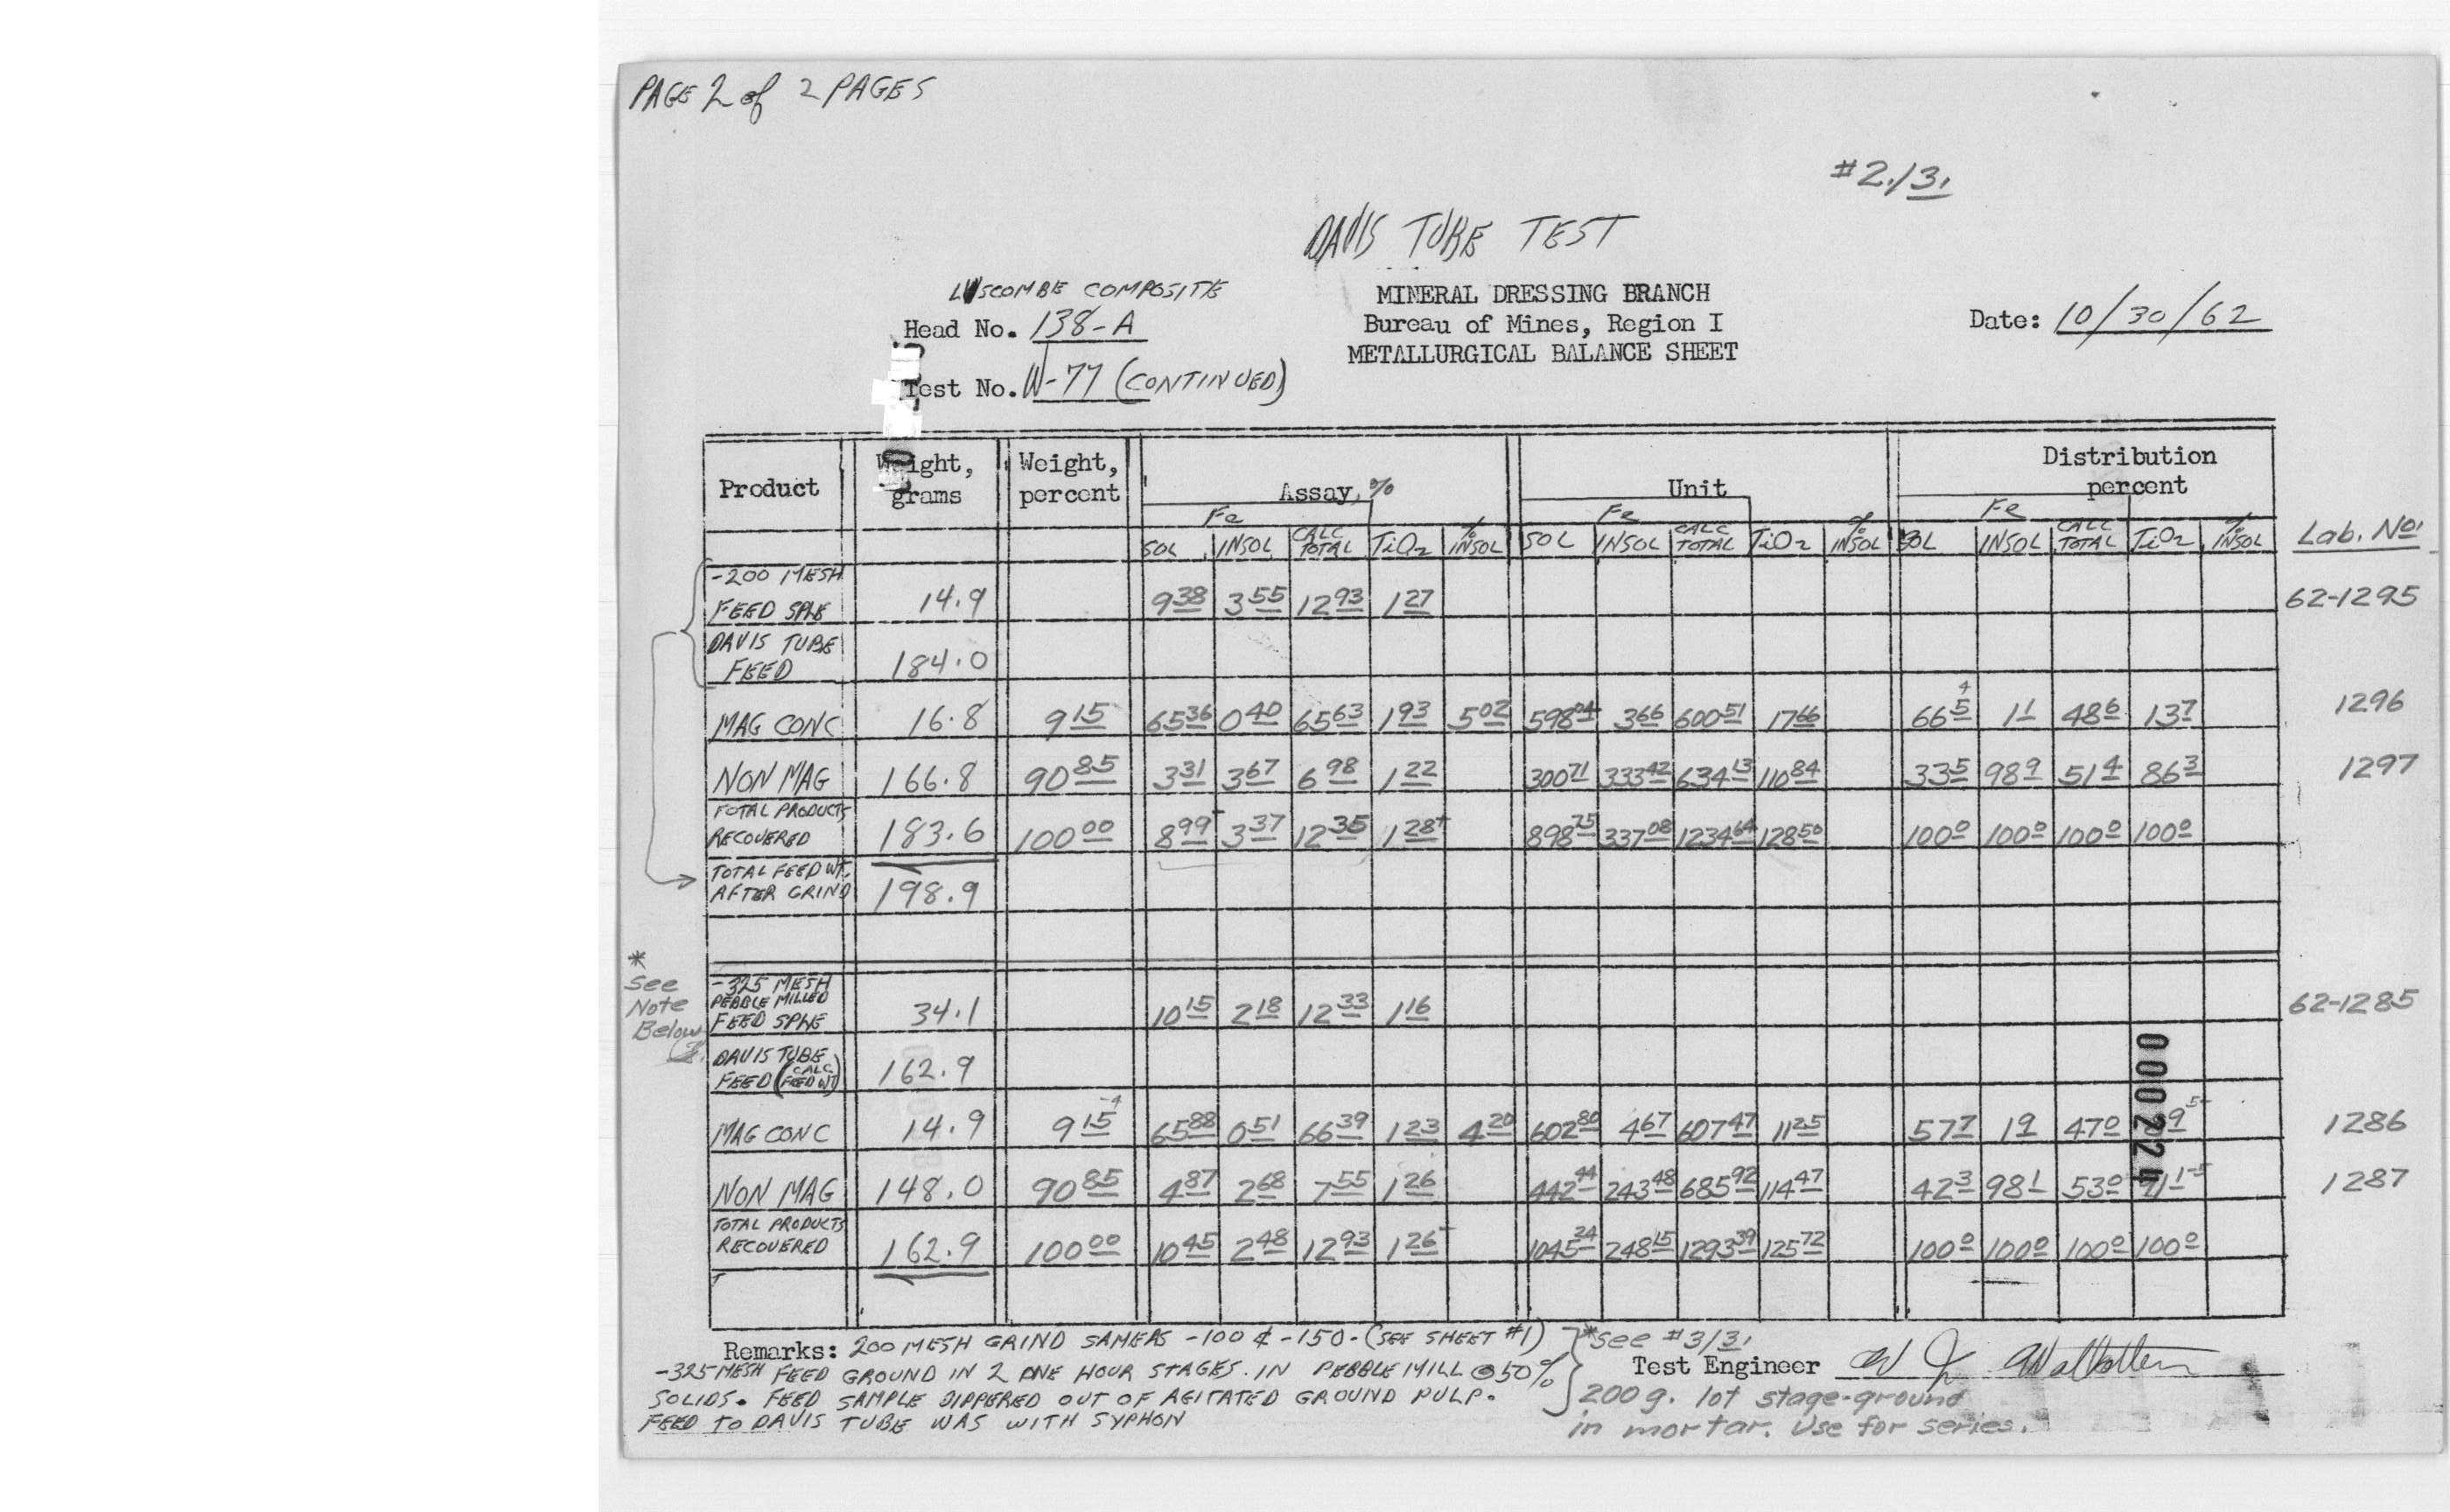 PAGE 2 of 2 PAGES
#2./3.
DAVIS TUBE TEST
LUSCOMBE COMPOSITE
Head No. 138-A
Test No. W-77 (CONTINUED)
MINERAL DRESSING BRANCH
Bureau of Mines, Region I
METALLURGICAL BALANCE SHEET
Date: 10/30/62
Product Weight, grams Weight, percent Assay, % Unit Distribution percent
Fe Fe Fe
SOL INSOL CALC TOTAL TiO2 % INSOL SOL INSOL CALC TOTAL TiO2 % INSOL SOL INSOL CALC TOTAL TiO2 % INSOL Lab. No.
-200 MESH FEED SPLE 14.9 9 38 3 55 12 93 1 27 62-1295
DAVIS TUBE FEED 184.0
MAG CONC 16.8 9 15 65 36 0 40 65 63 1 93 5 02 598 04 3 66 600 51 17 66 66 5 4 1 1 48 6 13 7 1296
NON MAG 166.8 90 85 3 31 3 67 6 98 1 22 300 71 333 42 634 13 110 84 33 5 98 9 51 4 86 3 1297
TOTAL PRODUCTS RECOVERED 183.6 100 00 8 99 3 37 12 35 1 28+ 898 75 337 08 1234 64 128 50 100 0 100 0 100 0 100 0
TOTAL FEED WT. AFTER GRIND 198.9
* See Note Below
-325 MESH PEBBLE MILLED FEED SPLE 34.1 10 15 2 18 12 33 1 16 62-1285
DAVIS TUBE FEED (CALC FEED WT) 162.9
MAG CONC 14.9 9 15 65 88 0 51 66 39 1 23 4 20 602 80 4 67 607 47 11 25 57 7 1 9 47 0 9 1286
NON MAG 148.0 90 85 4 87 2 68 7 55 1 26 442 44 243 48 685 92 114 47 42 3 98 1 53 0 1287
TOTAL PRODUCTS RECOVERED 162.9 100 00 10 45 2 48 12 93 1 26 1045 24 248 15 1293 39 125 72 100 0 100 0 100 0 100 0
000224
Remarks: 200 MESH GRIND SAME AS -100 & -150- (SEE SHEET #1)
-325 MESH FEED GROUND IN 2 ONE HOUR STAGES. IN PEBBLE MILL @ 50%
SOLIDS. FEED SAMPLE DIPPERED OUT OF AGITATED GROUND PULP.
FEED TO DAVIS TUBE WAS WITH SYPHON
*See #3/3.
Test Engineer
200 g. lot stage-ground
in mortar. Use for series.